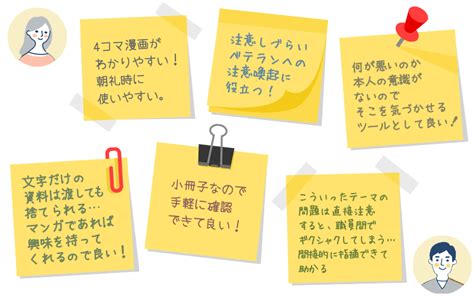 4コマ漫画が
わかりやすい！
朝礼時に
使いやすい。
注意しづらい
ベテランへの
注意喚起に
役立つ！
何が悪いのか
本人の意識が
ないので
そこを気づかせる
ツールとして良い！
文字だけの
資料は渡しても
捨てられる…
マンガであれば
興味を持って
くれるので良い！
小冊子なので
手軽に確認
できて良い！
こういったテーマの
問題は直接注意
すると、職員間で
ギクシャクしてしまう…
間接的に指摘できて
助かる